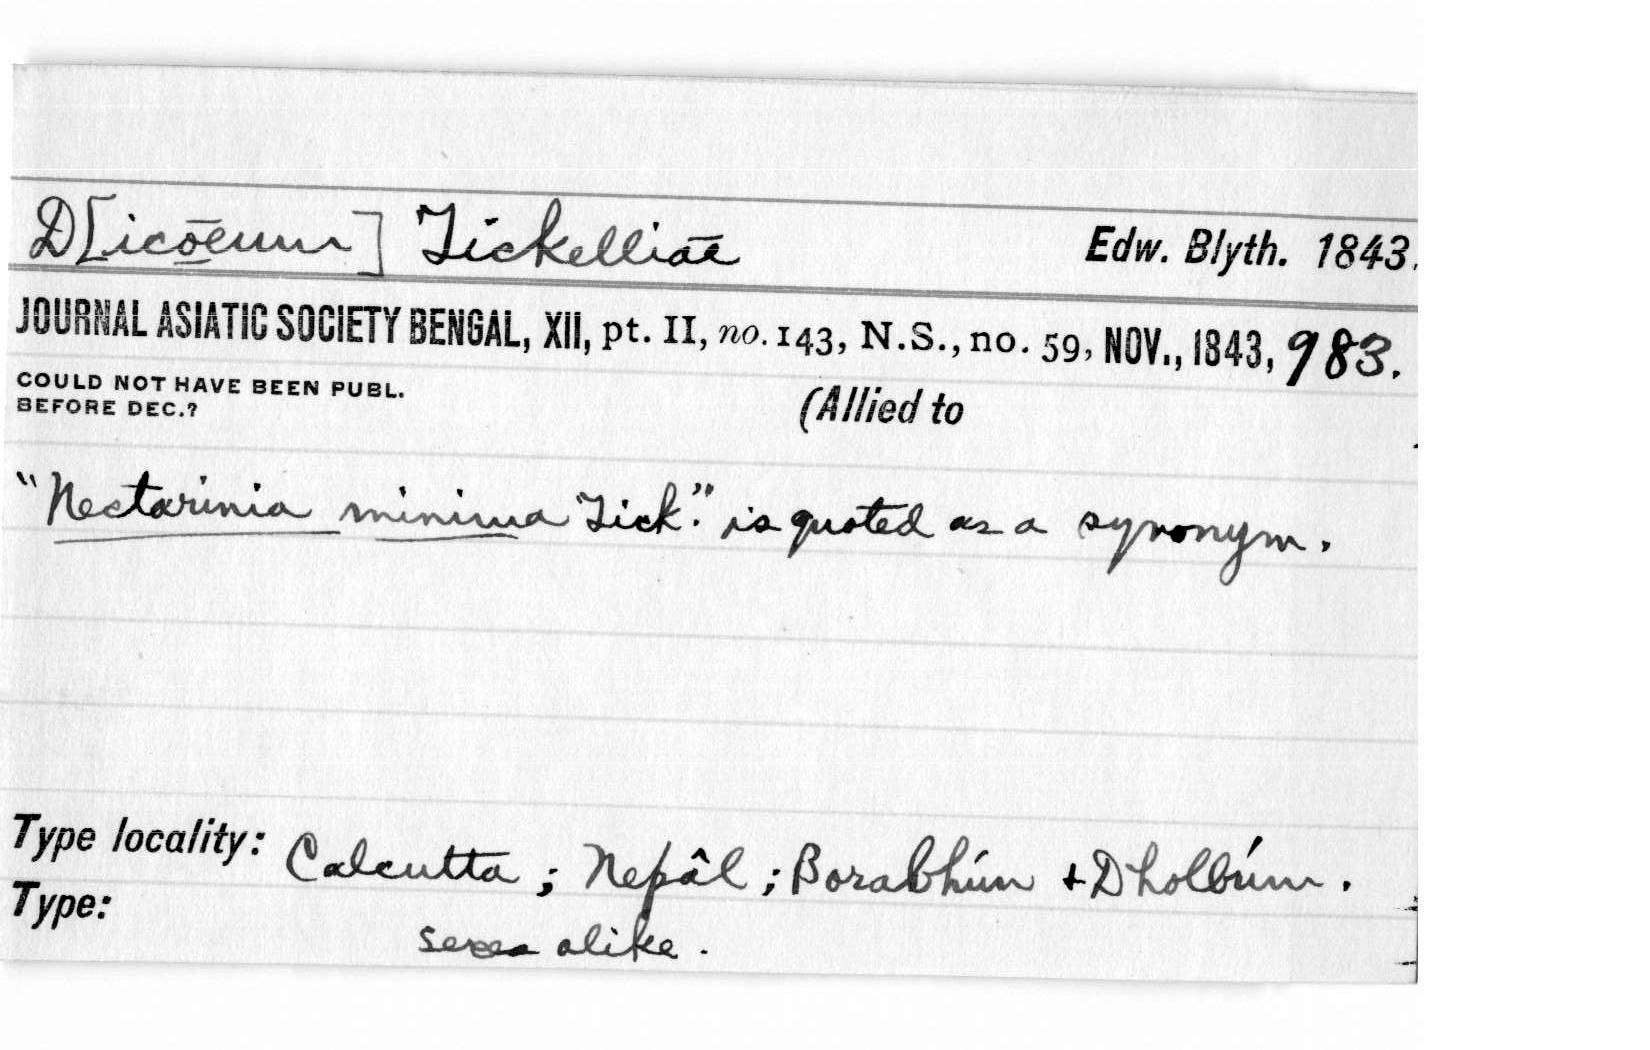 D[icoeum] Tickelliae Edw. Blyth. 1843.
JOURNAL ASIATIC SOCIETY BENGAL, XII, pt. II, no. 143, N.S., no. 59, NOV., 1843, 983.
COULD NOT HAVE BEEN PUBL.
BEFORE DEC.?
(Allied to
"Nectarinia minima Tick." is quoted as a synonym.
Type locality: Calcutta; Nepâl; Borabhún + Dholbúm.
Type:
sexes alike.